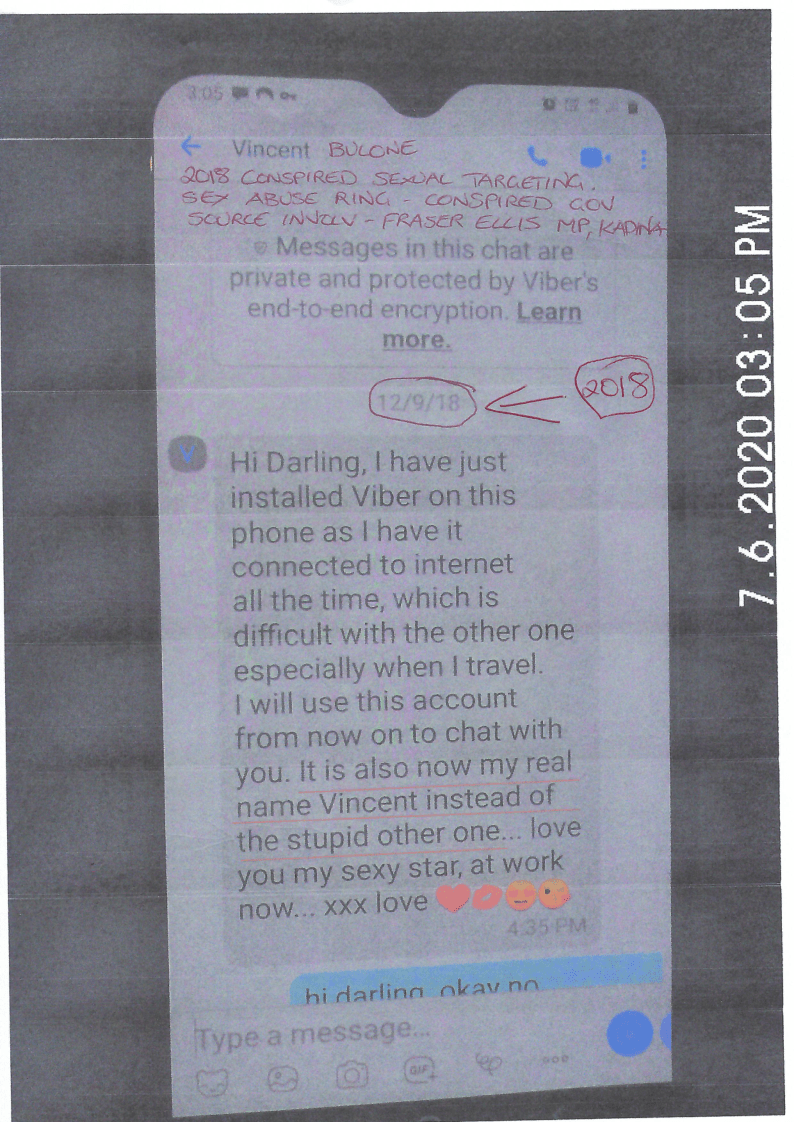 3:05
Vincent BULONE
2018 CONSPIRED SEXUAL TARGETING.
SEX ABUSE RING - CONSPIRED GOV
SOURCE INVOLV - FRASER ELLIS MP, KADINA
Messages in this chat are
private and protected by Viber's
end-to-end encryption. Learn
more.
12/9/18
2018
V
Hi Darling, I have just
installed Viber on this
phone as I have it
connected to internet
all the time, which is
difficult with the other one
especially when I travel.
I will use this account
from now on to chat with
you. It is also now my real
name Vincent instead of
the stupid other one... love
you my sexy star, at work
now... xxx love
4:35 PM
hi darling, okay no
Type a message...
GIF
7.6.2020 03:05 PM